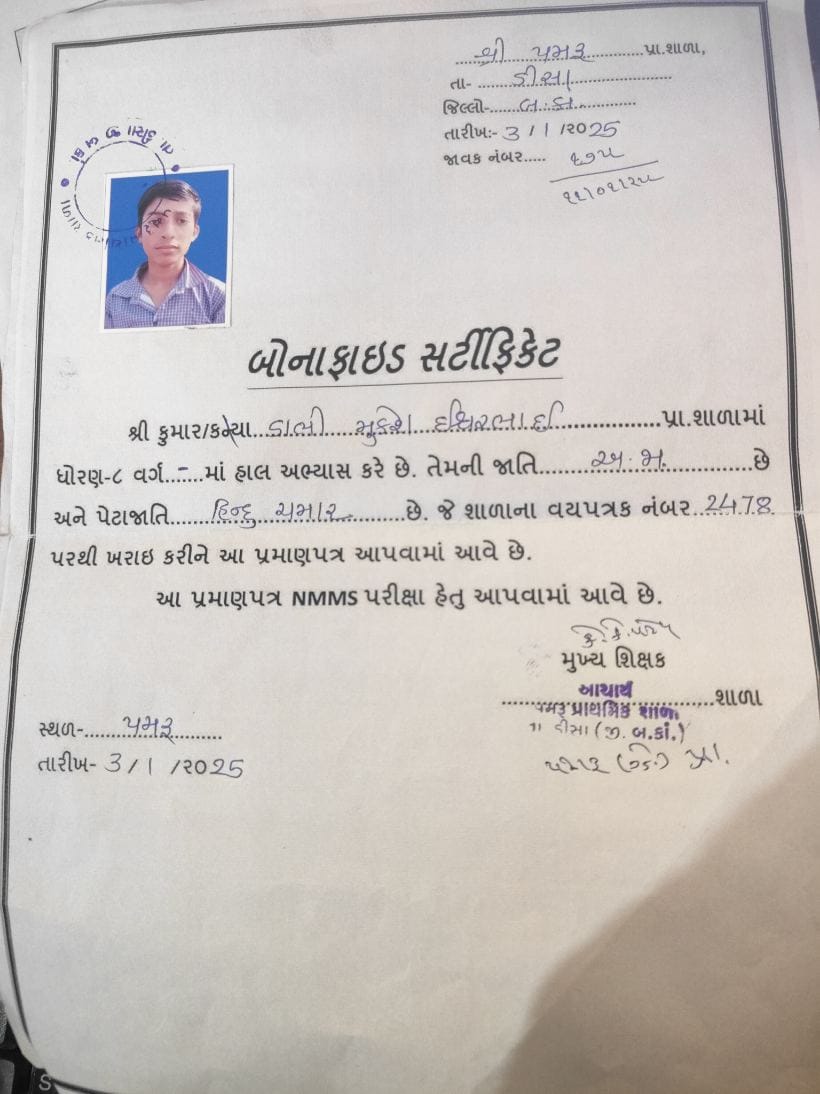 શ્રી પમરૂ પ્રા.શાળા,
તા- ડીસા
જિલ્લો- બ.કાં.
તારીખ:- 3 / 1 /૨૦25
જાવક નંબર..... ૬૭૫
૧૧/૦૧/૨૫
બોનાફાઇડ સર્ટીફિકેટ
શ્રી કુમાર/કન્યા ડાભી મુકેશ ઇશ્વરભાઈ પ્રા.શાળામાં
ધોરણ-૮ વર્ગ - માં હાલ અભ્યાસ કરે છે. તેમની જાતિ અ.જા. છે
અને પેટાજાતિ હિન્દુ ચમાર છે. જે શાળાના વયપત્રક નંબર 2478
પરથી ખરાઇ કરીને આ પ્રમાણપત્ર આપવામાં આવે છે.
આ પ્રમાણપત્ર NMMS પરીક્ષા હેતુ આપવામાં આવે છે.
મુખ્ય શિક્ષક
આચાર્ય શાળા
પમરૂ પ્રાથમિક શાળા
તા ડીસા (જી. બ.કાં.)
સ્થળ- પમરૂ
તારીખ- 3 / 1 /૨૦25